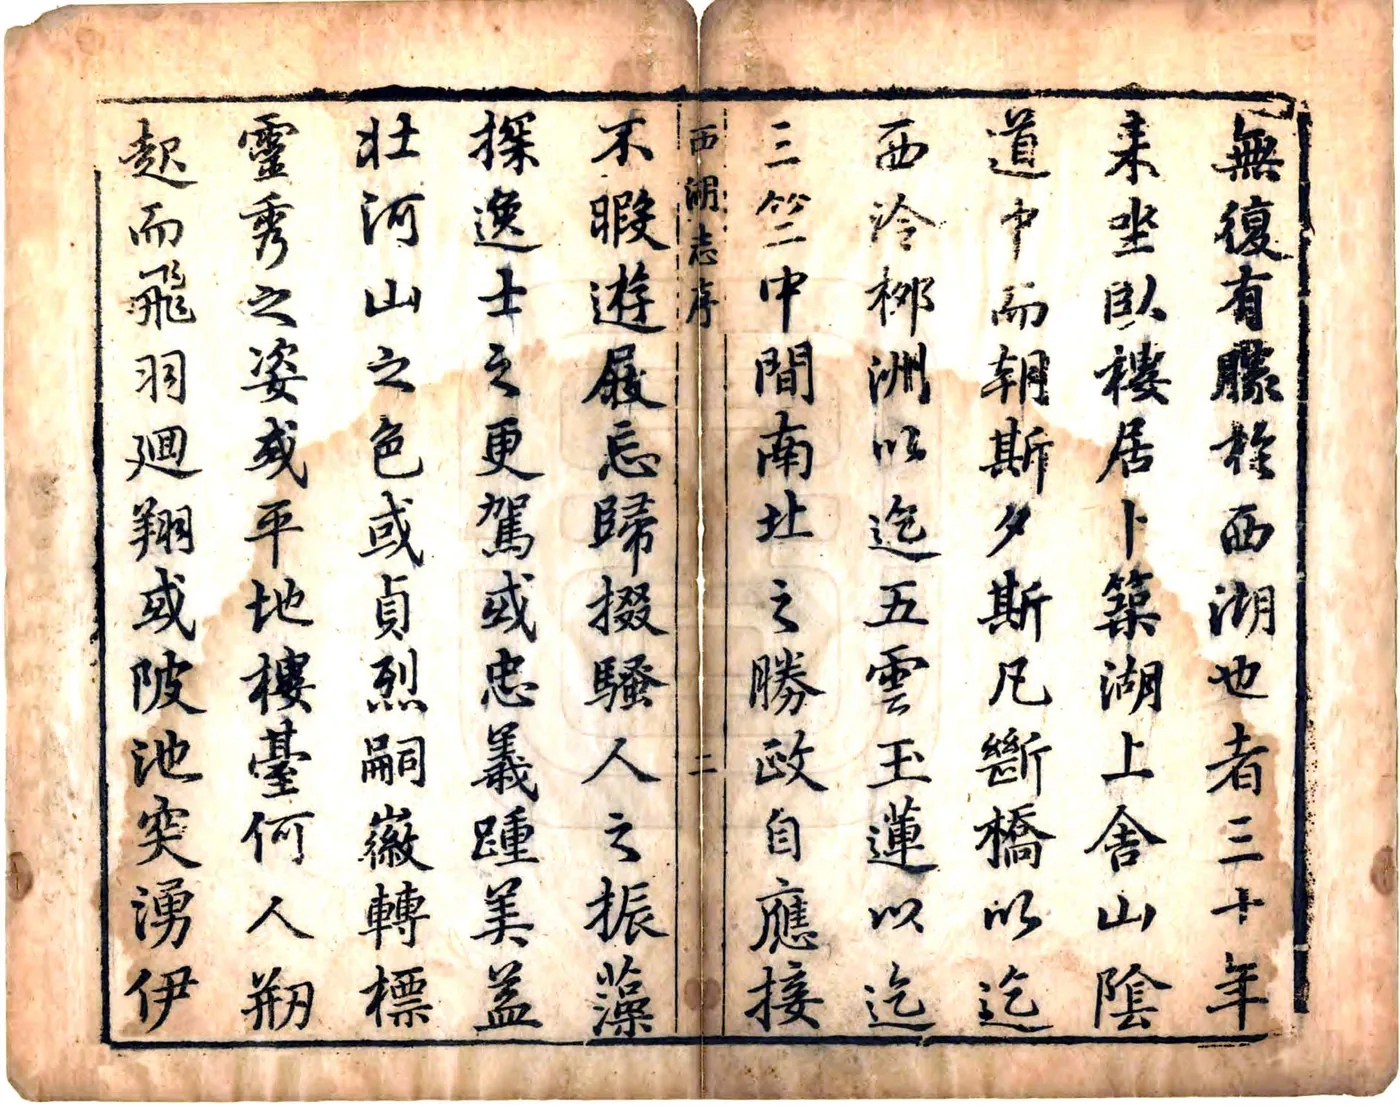 無復有朦於西湖也者三十年
来坐臥樓居卜築湖上舍山陰
道中而朝斯夕斯凡斷橋以迄
西泠栁洲以迄五雲玉蓮以迄
三竺二中間南北之勝政自應接
西湖志序 二
不暇遊屐忘歸掇騷人之振藻
探逸士之更駕或忠義踵美蓋
壯河山之色或貞烈嗣徽轉標
靈秀之姿或平地樓臺何人刱
起而飛羽廻翔或陂池突湧伊